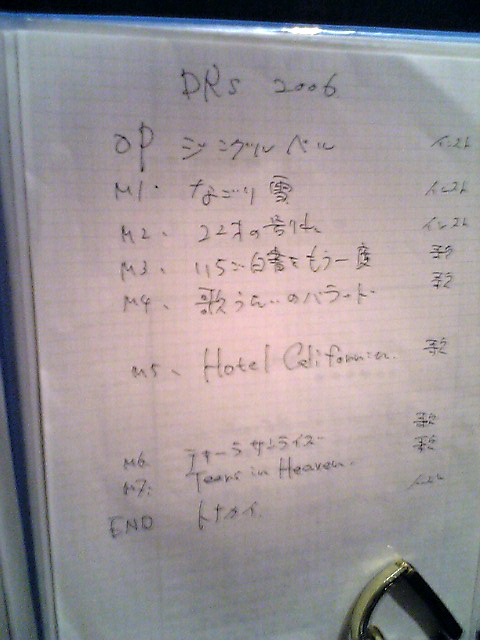 DRs 2006
OP ジングルベル インスト
M1. なごり雪 インスト
M2. 22才の別れ インスト
M3. いちご白書をもう一度 歌
M4. 歌うたいのバラード 歌
M5. Hotel California. 歌
歌
M6. サンライズ 歌
M7. Tears in Heaven.
END トナカイ インスト